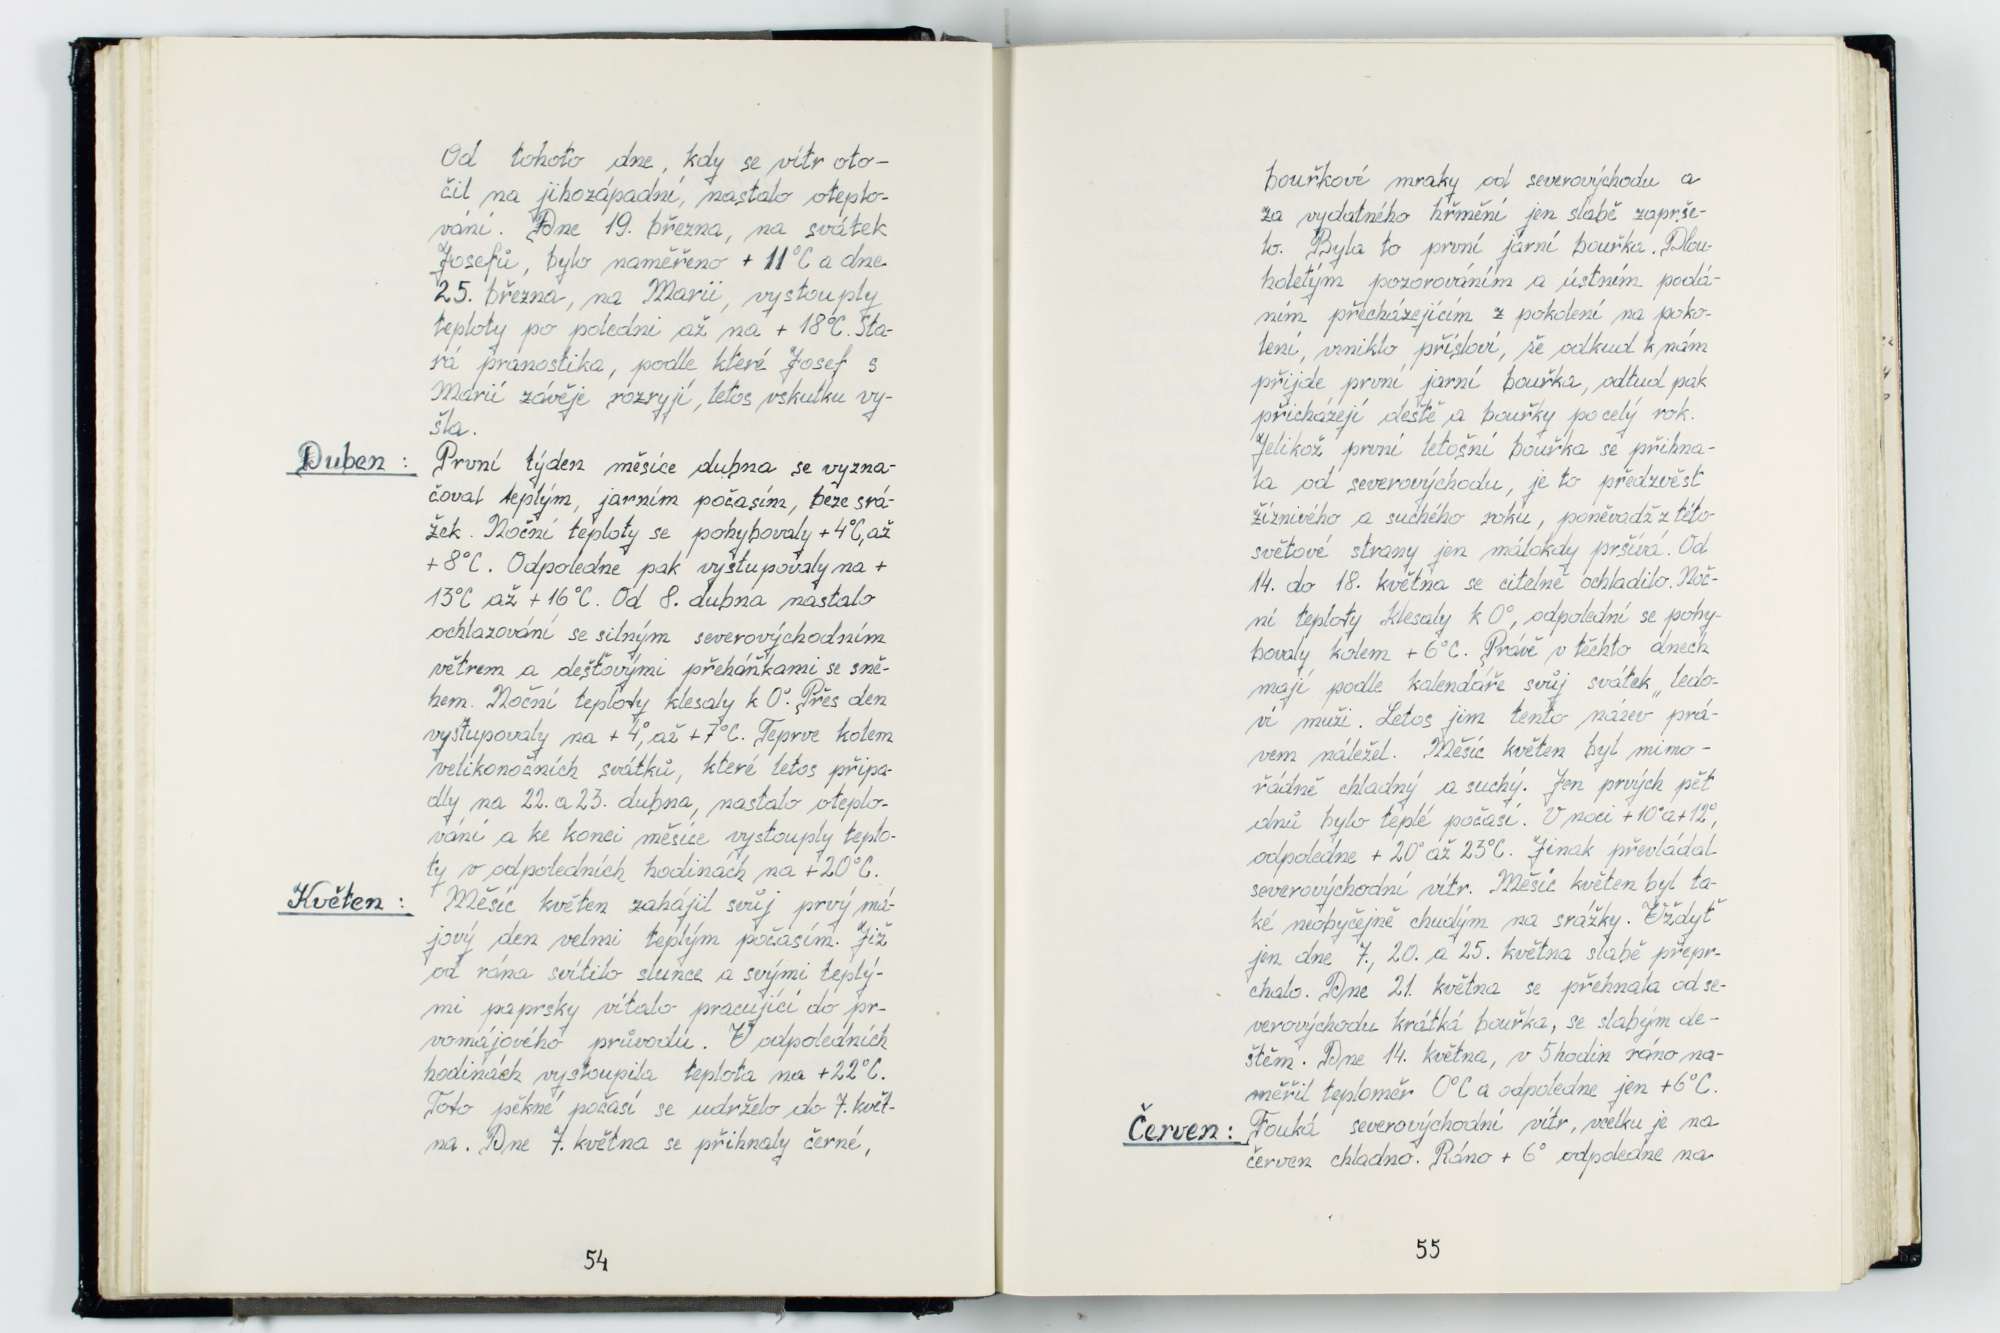 Od tohoto dne, kdy se vítr oto-
čil na jihozápadní, nastalo oteplo-
vání. Dne 19. března, na svátek
Josefů, bylo naměřeno + 11°C a dne
25. března, na Marii, vystouply
teploty po poledni až na + 18°C. Sta-
rá pranostika, podle které Josef s
Marií závěje rozryjí, letos vskutku vy-
šla.
Duben : První týden měsíce dubna se vyzna-
čoval teplým, jarním počasím, beze srá-
žek. Noční teploty se pohybovaly +4°C, až
+8°C. Odpoledne pak vystupovaly na +
13°C až +16°C. Od 8. dubna nastalo
ochlazování se silným severovýchodním
větrem a dešťovými přeháňkami se sně-
hem. Noční teploty klesaly k 0°. Přes den
vystupovaly na +4°, až +7°C. Teprve kolem
velikonočních svátků, které letos připa-
dly na 22. a 23. dubna, nastalo oteplo-
vání a ke konci měsíce vystouply teplo-
ty v odpoledních hodinách na +20°C.
Květen : Měsíc květen zahájil svůj prvý má-
jový den velmi teplým počasím. Již
od rána svítilo slunce a svými teplý-
mi paprsky vítalo pracující do pr-
vomájového průvodu. V odpoledních
hodinách vystoupila teplota na +22°C.
Toto pěkné počasí se udrželo do 7. květ-
na. Dne 7. května se přihnaly černé,
54
bouřkové mraky od severovýchodu a
za vydatného hřmění jen slabě zaprše-
lo. Byla to první jarní bouřka. Dlou-
holetým pozorováním a ústním podá-
ním přecházejícím z pokolení na poko-
lení, vzniklo přísloví, že odkud k nám
přijde první jarní bouřka, odtud pak
přicházejí deště a bouřky po celý rok.
Jelikož první letošní bouřka se přihna-
la od severovýchodu, je to předzvěst
žíznivého a suchého roku, poněvadž z této
světové strany jen málokdy pršívá. Od
14. do 18. května se citelně ochladilo. Noč-
ní teploty klesaly k 0°, odpolední se pohy-
bovaly kolem +6°C. Právě v těchto dnech
mají podle kalendáře svůj svátek „ledo-
ví muži. Letos jim tento název prá-
vem náležel. Měsíc květen byl mimo-
řádně chladný a suchý. Jen prvých pět
dnů bylo teplé počasí. V noci +10° a +12°,
odpoledne + 20° až 23°C. Jinak převládal
severovýchodní vítr. Měsíc květen byl ta-
ké neobyčejně chudým na srážky. Vždyť
jen dne 7., 20. a 25. května slabě přepr-
chalo. Dne 21. května se přehnala od se-
verovýchodu krátká bouřka, se slabým de-
štěm. Dne 14. května, v 5 hodin ráno na-
měřil teploměr 0°C a odpoledne jen +6°C.
Červen : Fouká severovýchodní vítr, vcelku je na
červen chladno. Ráno + 6° odpoledne na
55